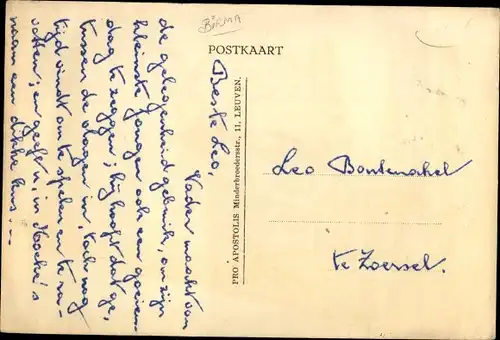 BIRMA
POSTKAART
Beste Leo,
Vader maakt van
de gelegenheid gebruik, om zijn
kleinste jongen ook een goeien-
dag te zeggen; hij hoopt dat ge,
tussen de vlagen in, toch nog
tijd vindt om te spelen en te ra-
votten; en geef en, in Moeke's
naam een dikke kus. —
PRO APOSTOLIS Minderbroedersstr., 11, LEUVEN.
Leo Bontenakel
te Zoersel.